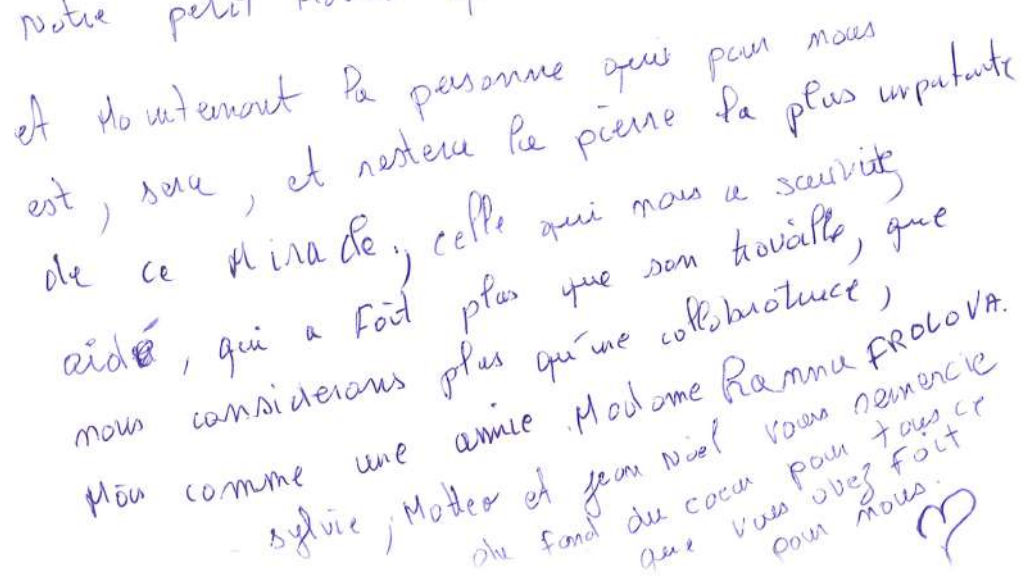 Notre petit
et Maintenant la personne qui pour nous
est, sera, et restera la pierre la plus importante
de ce Miracle, celle qui nous a
aidé, qui a Fait plus que son travaille, que
nous considerons plus qu'une collaboratrice,
Mais comme une amie. Madame Ramma FROLOVA.
sylvie, Matteo et jean Noel vous remercie
du fond du coeur pour tous ce
que vous avez Fait
pour nous.